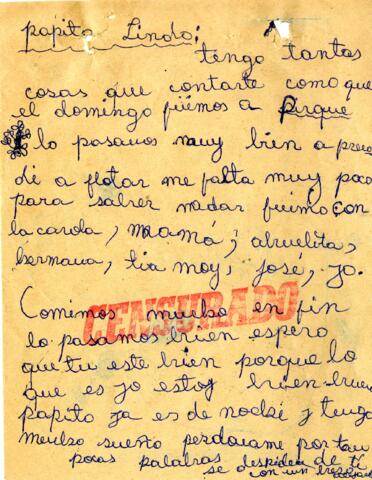 papito Lindo:
tengo tantas
cosas que contarte como que
el domingo fuimos a Pirque
lo pasamos muy bien a pren
di a flotar me falta muy poco
para saber nadar fuimo con
la carola, mamá, abuelita,
hermana, tia moy, josé, yo.
Comimos mucho en fin
CENSURADO
lo pasamos bien espero
que tu este bien porque lo
que es yo estoy bien bien
papito ya es de noche y tengo
mucho sueño perdoname por tan
pocas palabras se despiden de ti
con un beso